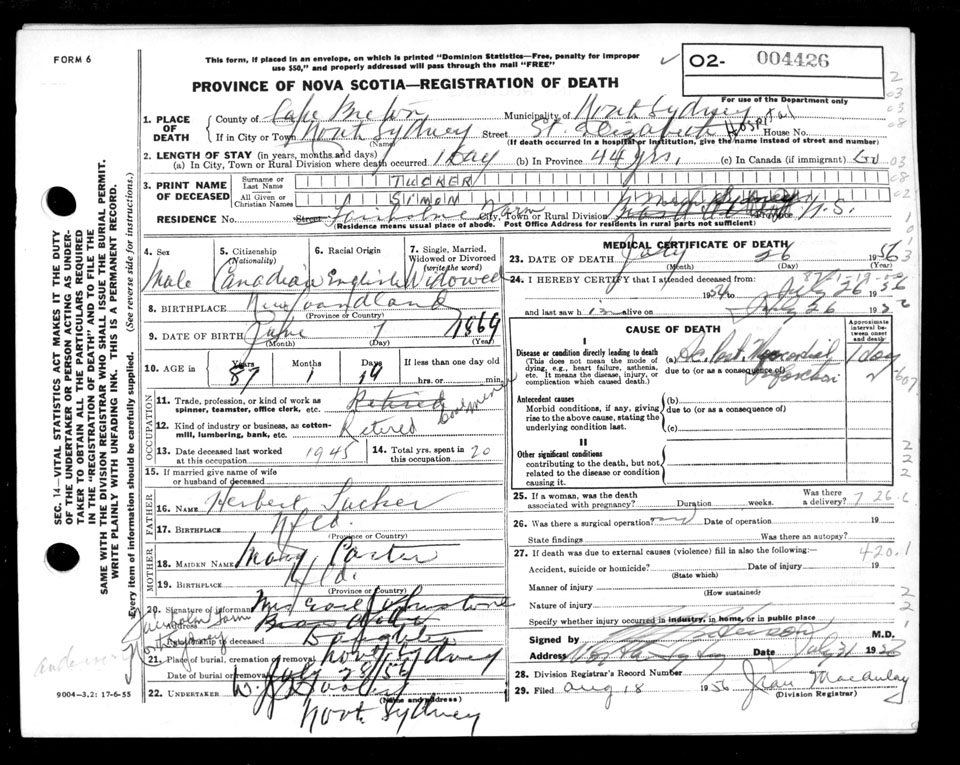 FORM 6
This form, if placed in an envelope, on which is printed "Dominion Statistics—Free, penalty for improper
use $50," and properly addressed will pass through the mail "FREE"
✓ O2- 004426
PROVINCE OF NOVA SCOTIA—REGISTRATION OF DEATH
For use of the Department only
1. PLACE OF DEATH
County of Cape Breton Municipality of North Sydney
If in City or Town North Sydney Street St. Elizabeth Hospital House No.
(Name) (If death occurred in a hospital or institution, give the name instead of street and number)
2. LENGTH OF STAY (in years, months and days)
(a) In City, Town or Rural Division where death occurred 1 Day (b) In Province 44 yrs. (c) In Canada (if immigrant)
3. PRINT NAME OF DECEASED
Surname or Last Name TUCKER
All Given or Christian Names SIMEN
RESIDENCE No. Street Farm City, Town or Rural Division North Sydney Province N.S.
(Residence means usual place of abode. Post Office Address for residents in rural parts not sufficient)
4. Sex Male
5. Citizenship (Nationality) Canadian
6. Racial Origin English
7. Single, Married, Widowed or Divorced (write the word) Widowed
8. BIRTHPLACE Newfoundland
(Province or Country)
9. DATE OF BIRTH June 7 1869
(Month) (Day) (Year)
10. AGE in Years 87 Months 1 Days 19 If less than one day old
hrs. or min.
OCCUPATION
11. Trade, profession, or kind of work as spinner, teamster, office clerk, etc. Retired
12. Kind of industry or business, as cotton-mill, lumbering, bank, etc. Retired
13. Date deceased last worked at this occupation 1945
14. Total yrs. spent in this occupation 20
15. If married give name of wife or husband of deceased
FATHER
16. NAME Herbert Tucker
17. BIRTHPLACE Nfld.
(Province or Country)
MOTHER
18. MAIDEN NAME Mary Carter
19. BIRTHPLACE Nfld.
(Province or Country)
20. Signature of informant Mrs Earl Johnstone
Address
Relationship to deceased Daughter
21. Place of burial, cremation or removal North Sydney
Date of burial or removal July 28/56
22. UNDERTAKER W.J. Dooley
(NAME AND ADDRESS)
North Sydney
9004—3.2: 17-6-55
SEC. 14—VITAL STATISTICS ACT MAKES IT THE DUTY
OF THE UNDERTAKER OR PERSON ACTING AS UNDER-
TAKER TO OBTAIN ALL THE PARTICULARS REQUIRED
IN THE "REGISTRATION OF DEATH" AND TO FILE THE
SAME WITH THE DIVISION REGISTRAR WHO SHALL ISSUE THE BURIAL PERMIT.
WRITE PLAINLY WITH UNFADING INK. THIS IS A PERMANENT RECORD.
Every item of information should be carefully supplied. (See reverse side for instructions.)
MEDICAL CERTIFICATE OF DEATH
23. DATE OF DEATH July 26 1956
(Month) (Day) (Year)
24. I HEREBY CERTIFY that I attended deceased from:
July 26 1956
and last saw him alive on July 26 19
CAUSE OF DEATH
Approximate interval between onset and death
I
Disease or condition directly leading to death
(This does not mean the mode of dying, e.g., heart failure, asthenia, etc. It means the disease, injury, or complication which caused death.)
(a) Myocardial 1 day
due to (or as a consequence of)
Antecedent causes
Morbid conditions, if any, giving rise to the above cause, stating the underlying condition last.
(b)
due to (or as a consequence of)
(c)
II
Other significant conditions
contributing to the death, but not related to the disease or condition causing it.
25. If a woman, was the death associated with pregnancy? Duration weeks. Was there a delivery?
26. Was there a surgical operation? no Date of operation 19
State findings Was there an autopsy?
27. If death was due to external causes (violence) fill in also the following:— 420.1
Accident, suicide or homicide? Date of 19
(State which)
Manner of injury
(How sustained)
Nature of injury
Specify whether injury occurred in industry, in home, or in public place
Signed by M.D.
Address Date July 31 1956
28. Division Registrar's Record Number
29. Filed Aug 18 1956 Jean MacAulay
(Division Registrar)